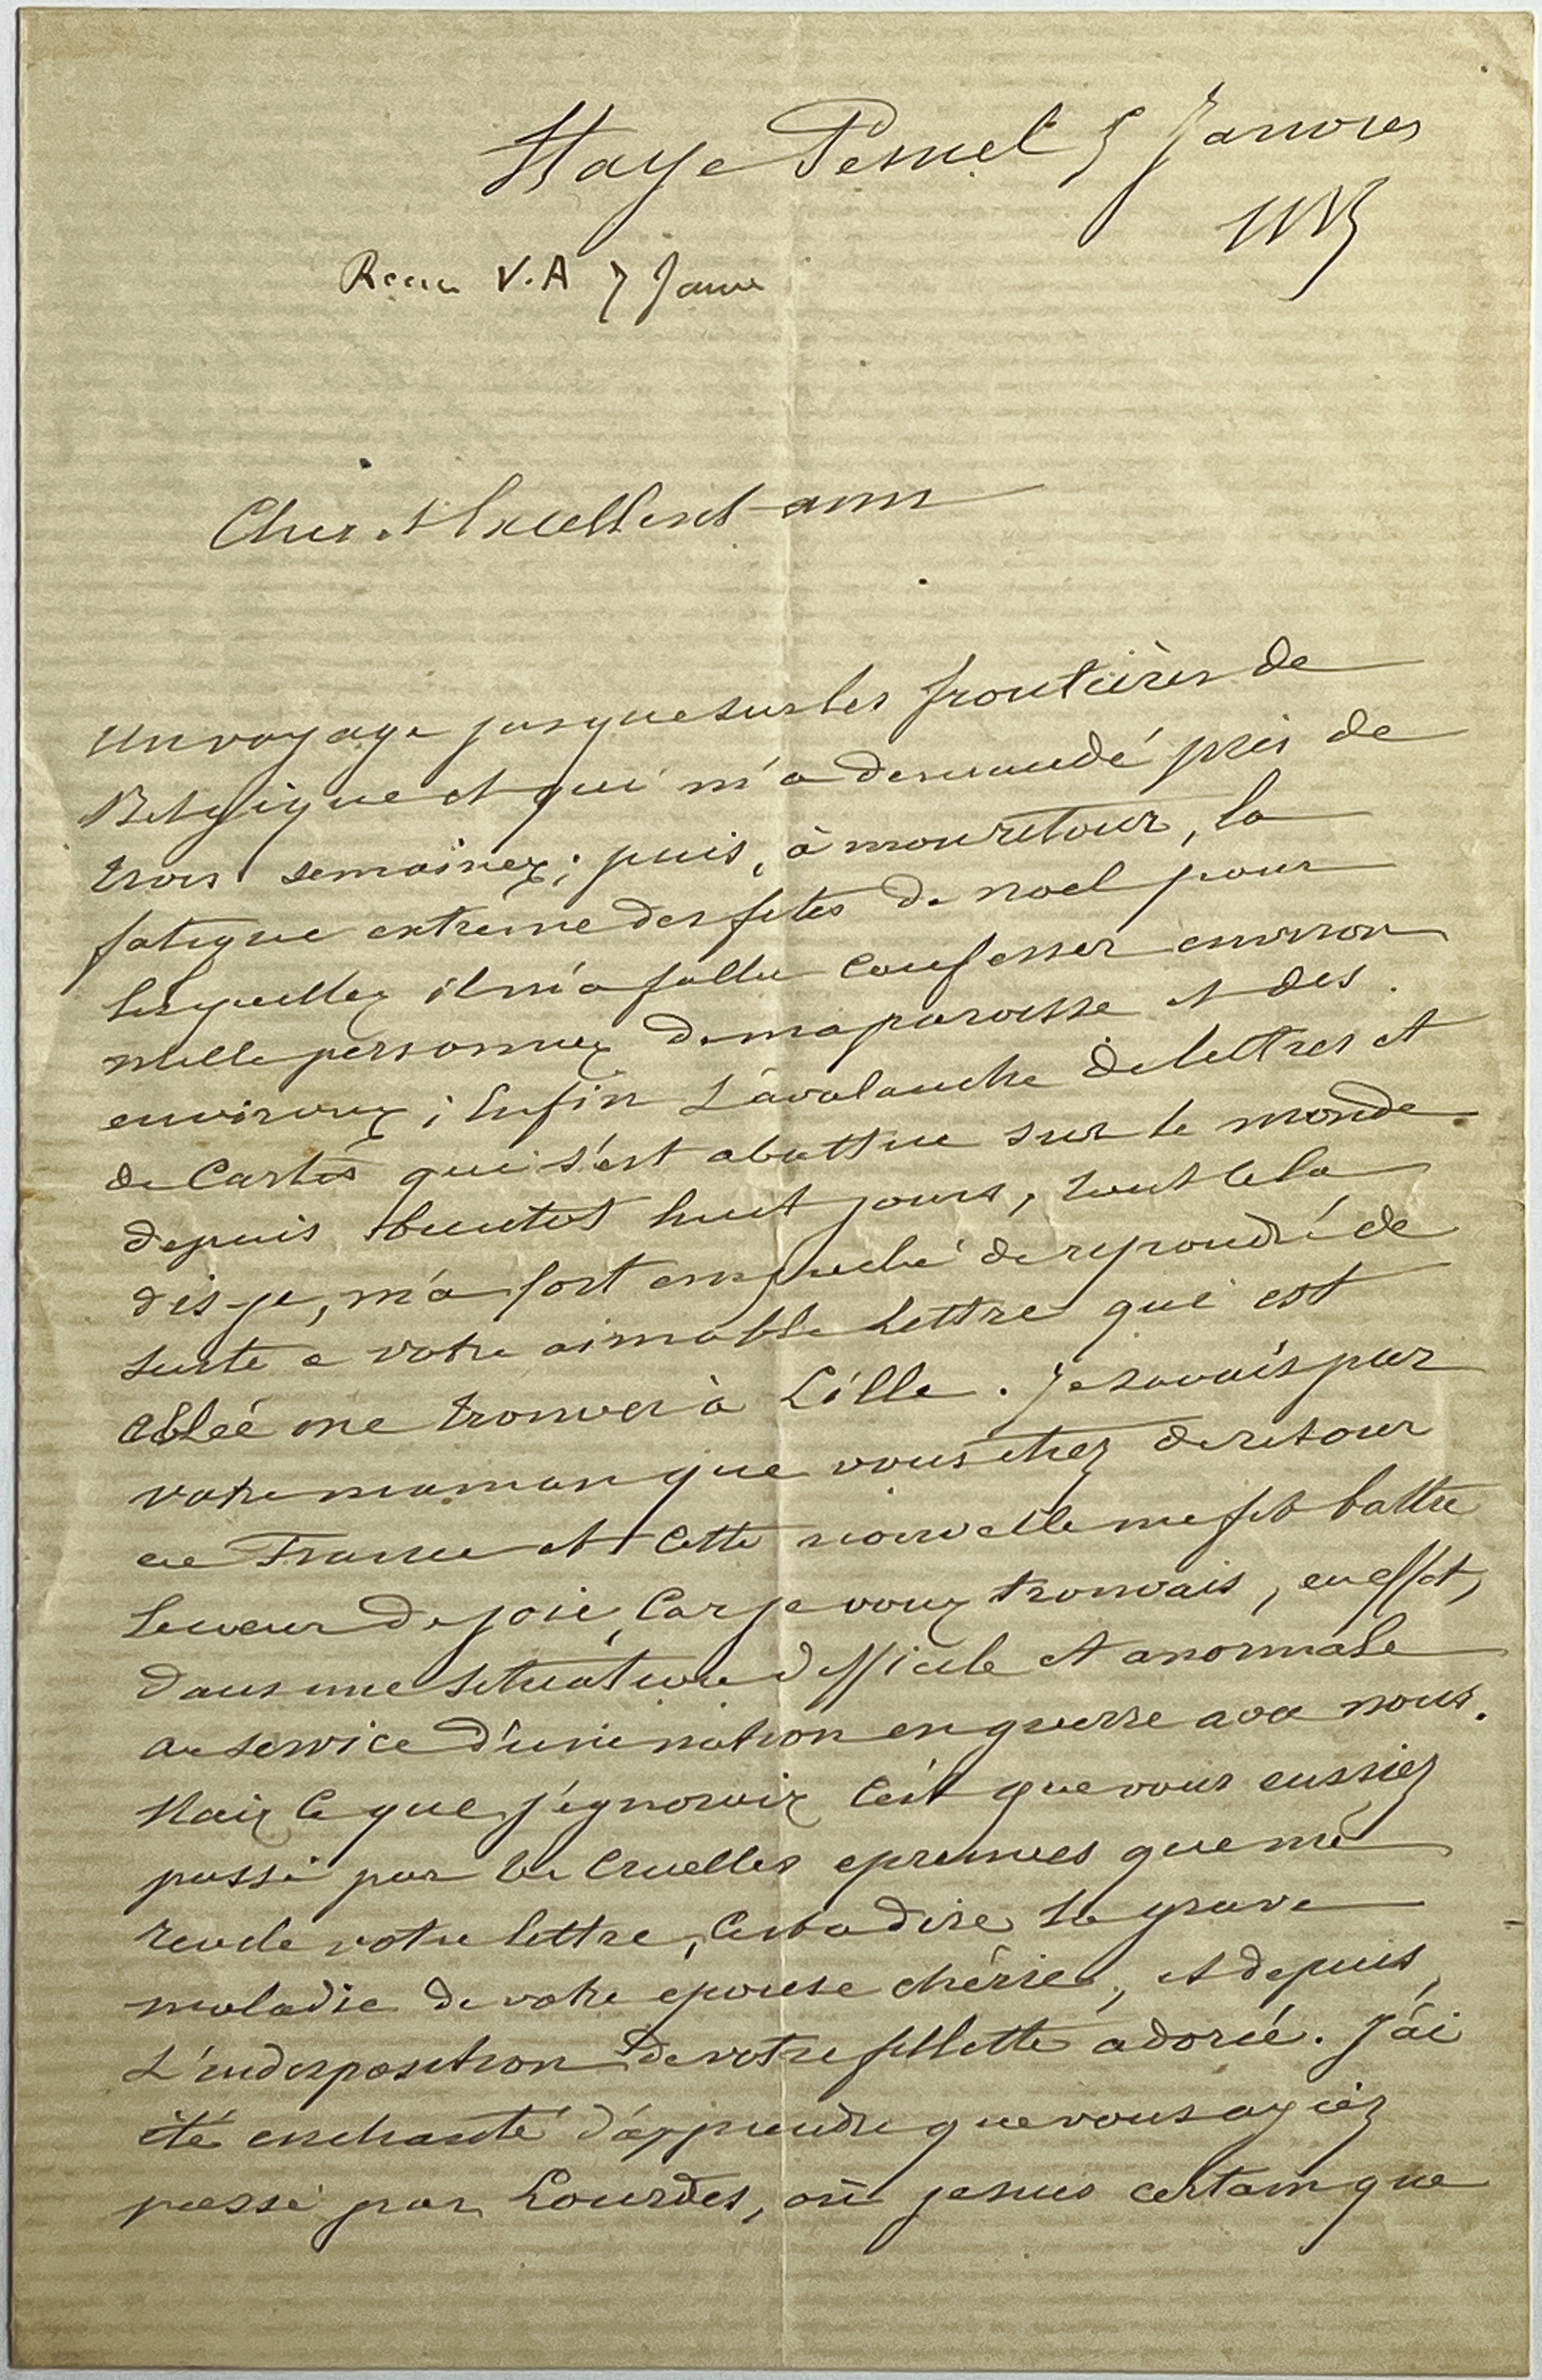 Haye Pesnel 5 Janvier
1885
Recu V.A 7 Janv
Cher et Excellent ami
Un voyage jusque sur les frontières de
Belgique et qui m'a demandé près de
trois semaines; puis, à mon retour, la
fatigue extrème des fetes de noel pour
lesquelles il m'a fallu confesser environ
mille personnes de ma paroisse et des
environs; Enfin L'avalanche de lettres et
de Cartes qui s'est abattue sur le monde
depuis bientot huit jours, tout cela
dis-je, m'a fort empeché de repondre de
suite a votre aimable lettre qui est
allée me trouver à Lille. Je savais par
votre maman que vous etiez de retour
en France et cette nouvelle me fit battre
le coeur de joie, Car je vous trouvais, en effet,
dans une situation difficile et anormale
au service d'une nation en guerre avec nous.
Mais Ce que j'ignorais C'est que vous eussiez
passé par les Cruelles epreuves que me
revele votre lettre, C'est a dire la grave
maladie de votre epouse chérie, et depuis,
L'indisposition de votre fillette adorée. J'ai
été enchanté d'apprendre que vous ayiez
passé par Lourdes, où je suis certain que